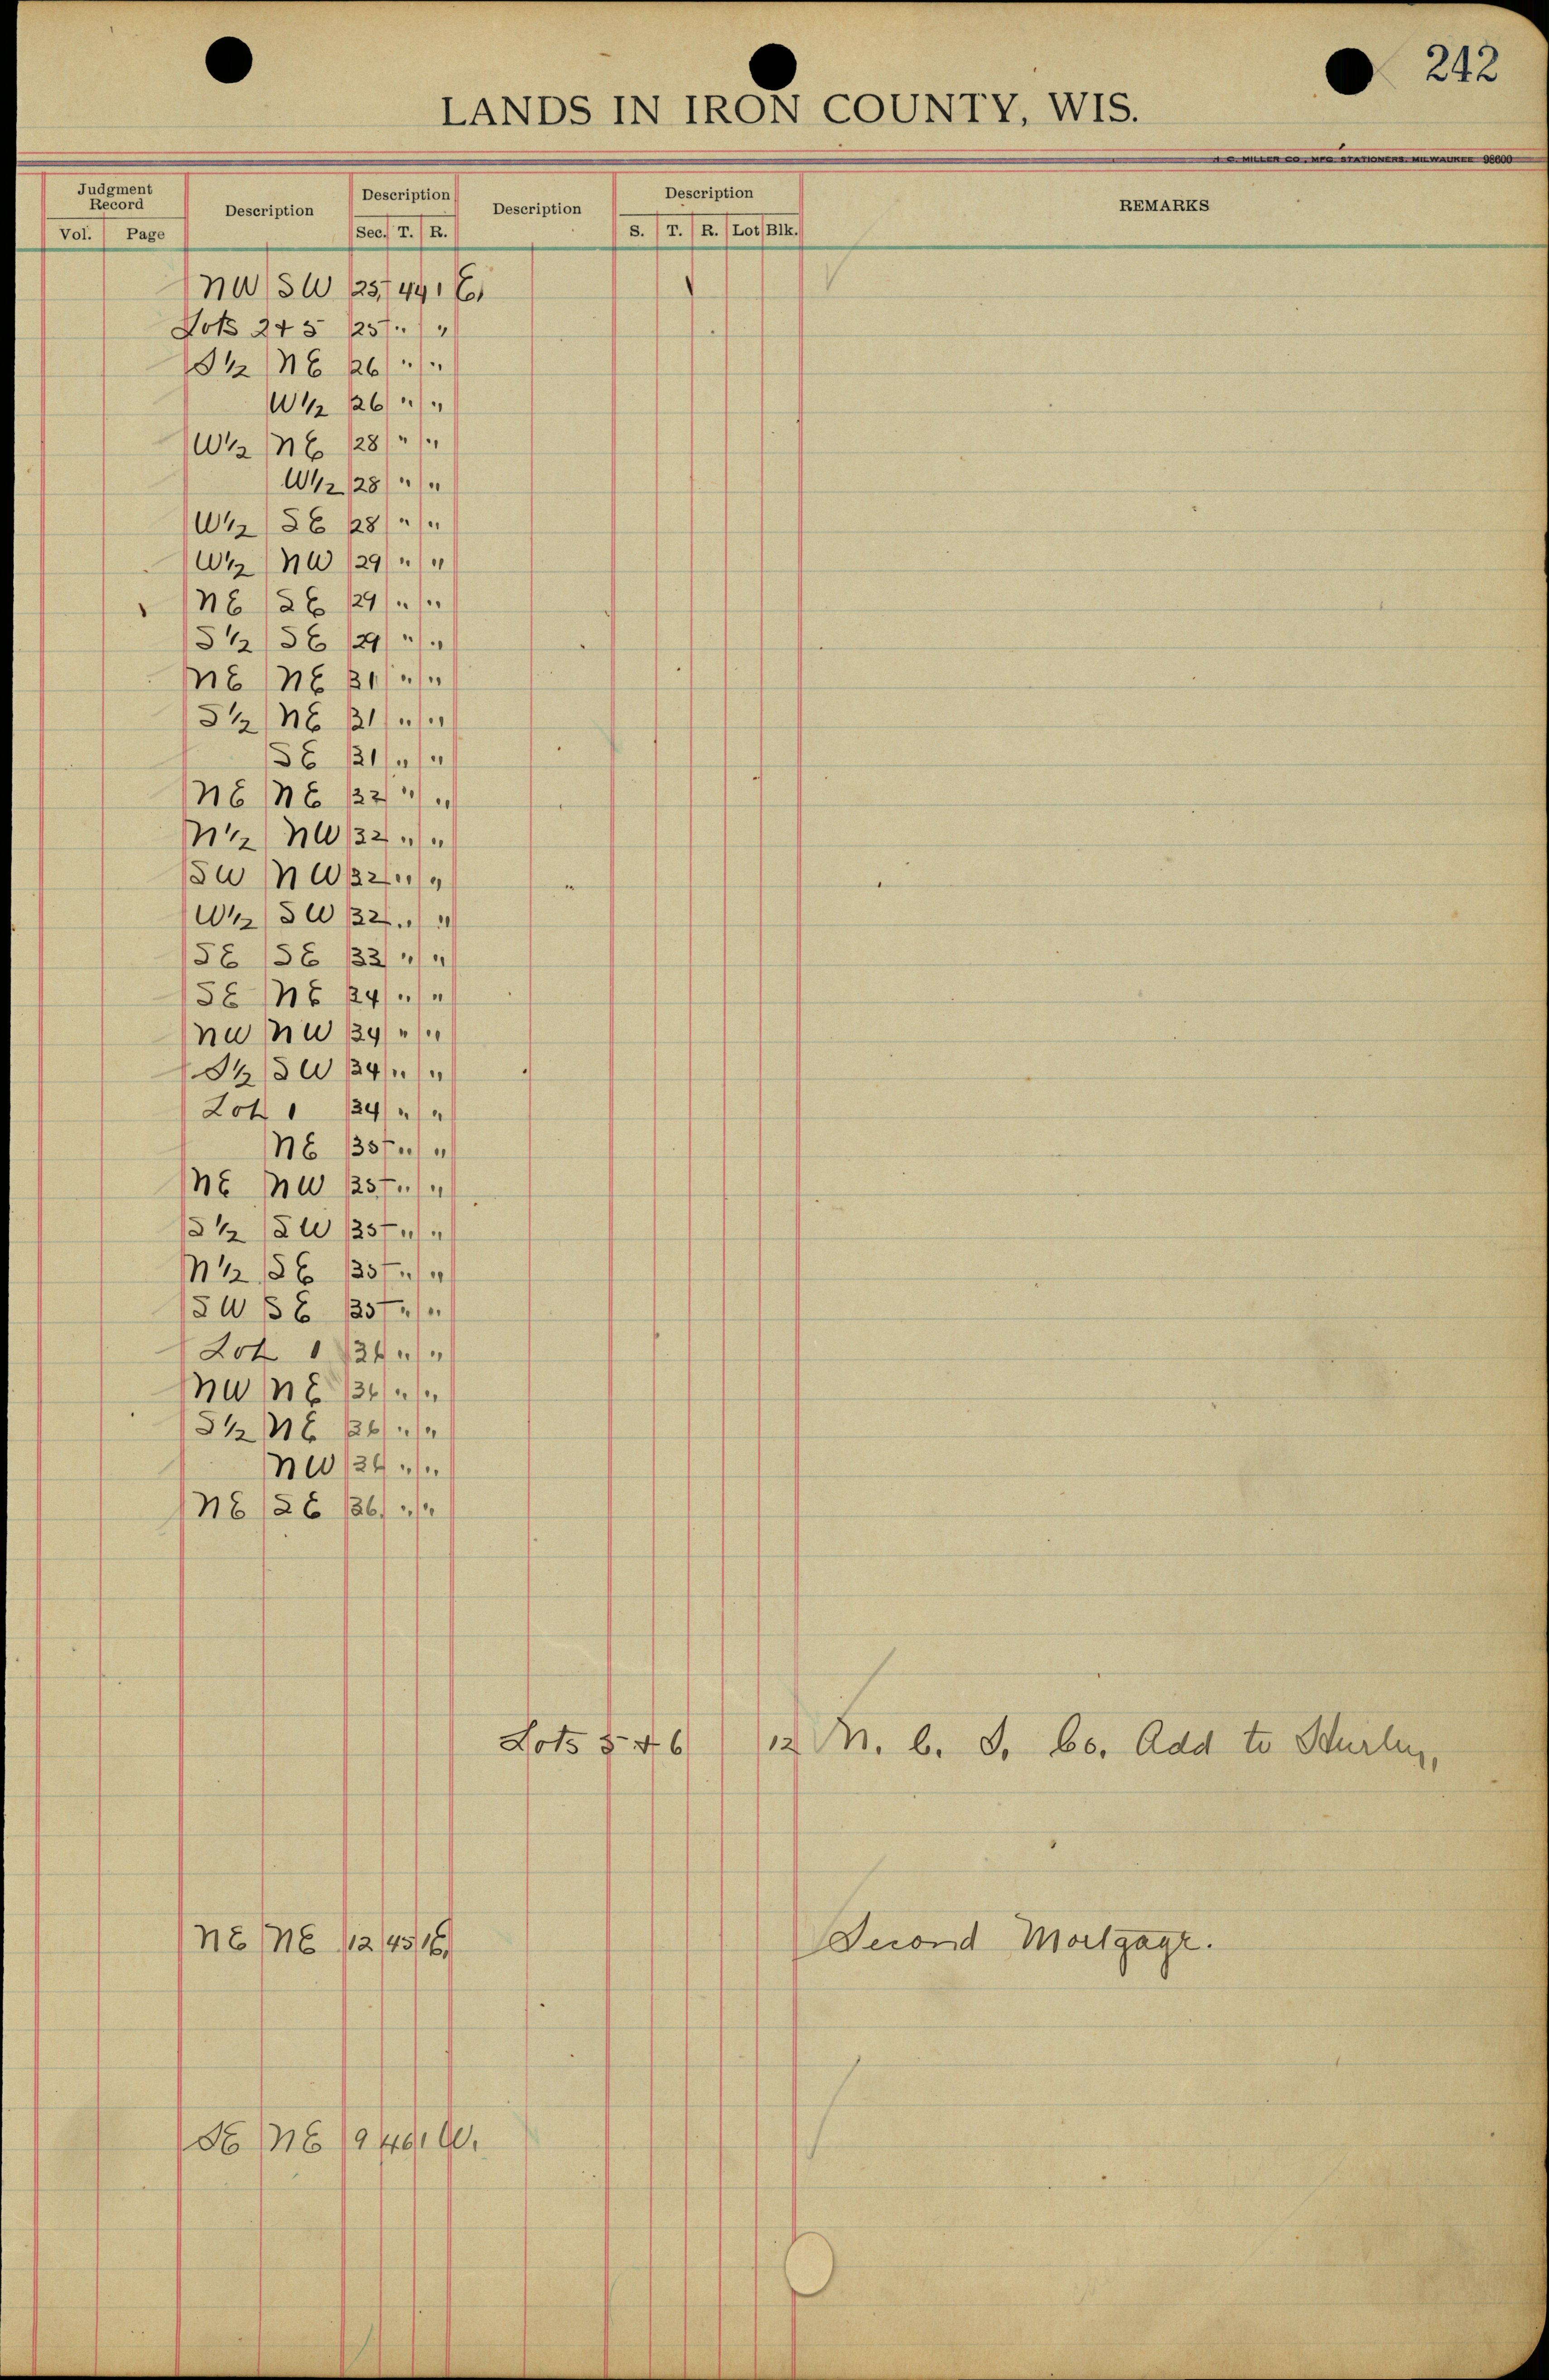 242
LANDS IN IRON COUNTY, WIS.
H. C. MILLER CO., MFG. STATIONERS, MILWAUKEE 98600
Judgment Record Description Description Description Description REMARKS
Vol. Page Sec. T. R. S. T. R. Lot Blk.
NW SW 25 44 1 E.
Lots 2 + 5 25 " "
S 1/2 NE 26 " "
W 1/2 26 " "
W 1/2 NE 28 " "
W 1/2 28 " "
W 1/2 SE 28 " "
W 1/2 NW 29 " "
NE SE 29 " "
S 1/2 SE 29 " "
NE NE 31 " "
S 1/2 NE 31 " "
SE 31 " "
NE NE 32 " "
N 1/2 NW 32 " "
SW NW 32 " "
W 1/2 SW 32 " "
SE SE 33 " "
SE NE 34 " "
NW NW 34 " "
S 1/2 SW 34 " "
Lot 1 34 " "
NE 35 " "
NE NW 35 " "
S 1/2 SW 35 " "
N 1/2 SE 35 " "
SW SE 35 " "
Lot 1 36 " "
NW NE 36 " "
S 1/2 NE 36 " "
NW 36 " "
NE SE 36 " "
Lots 5 + 6 12 M. C. I. Co. Add to Hurley,
NE NE 12 45 1 E. Second Mortgage.
SE NE 9 46 1 W.